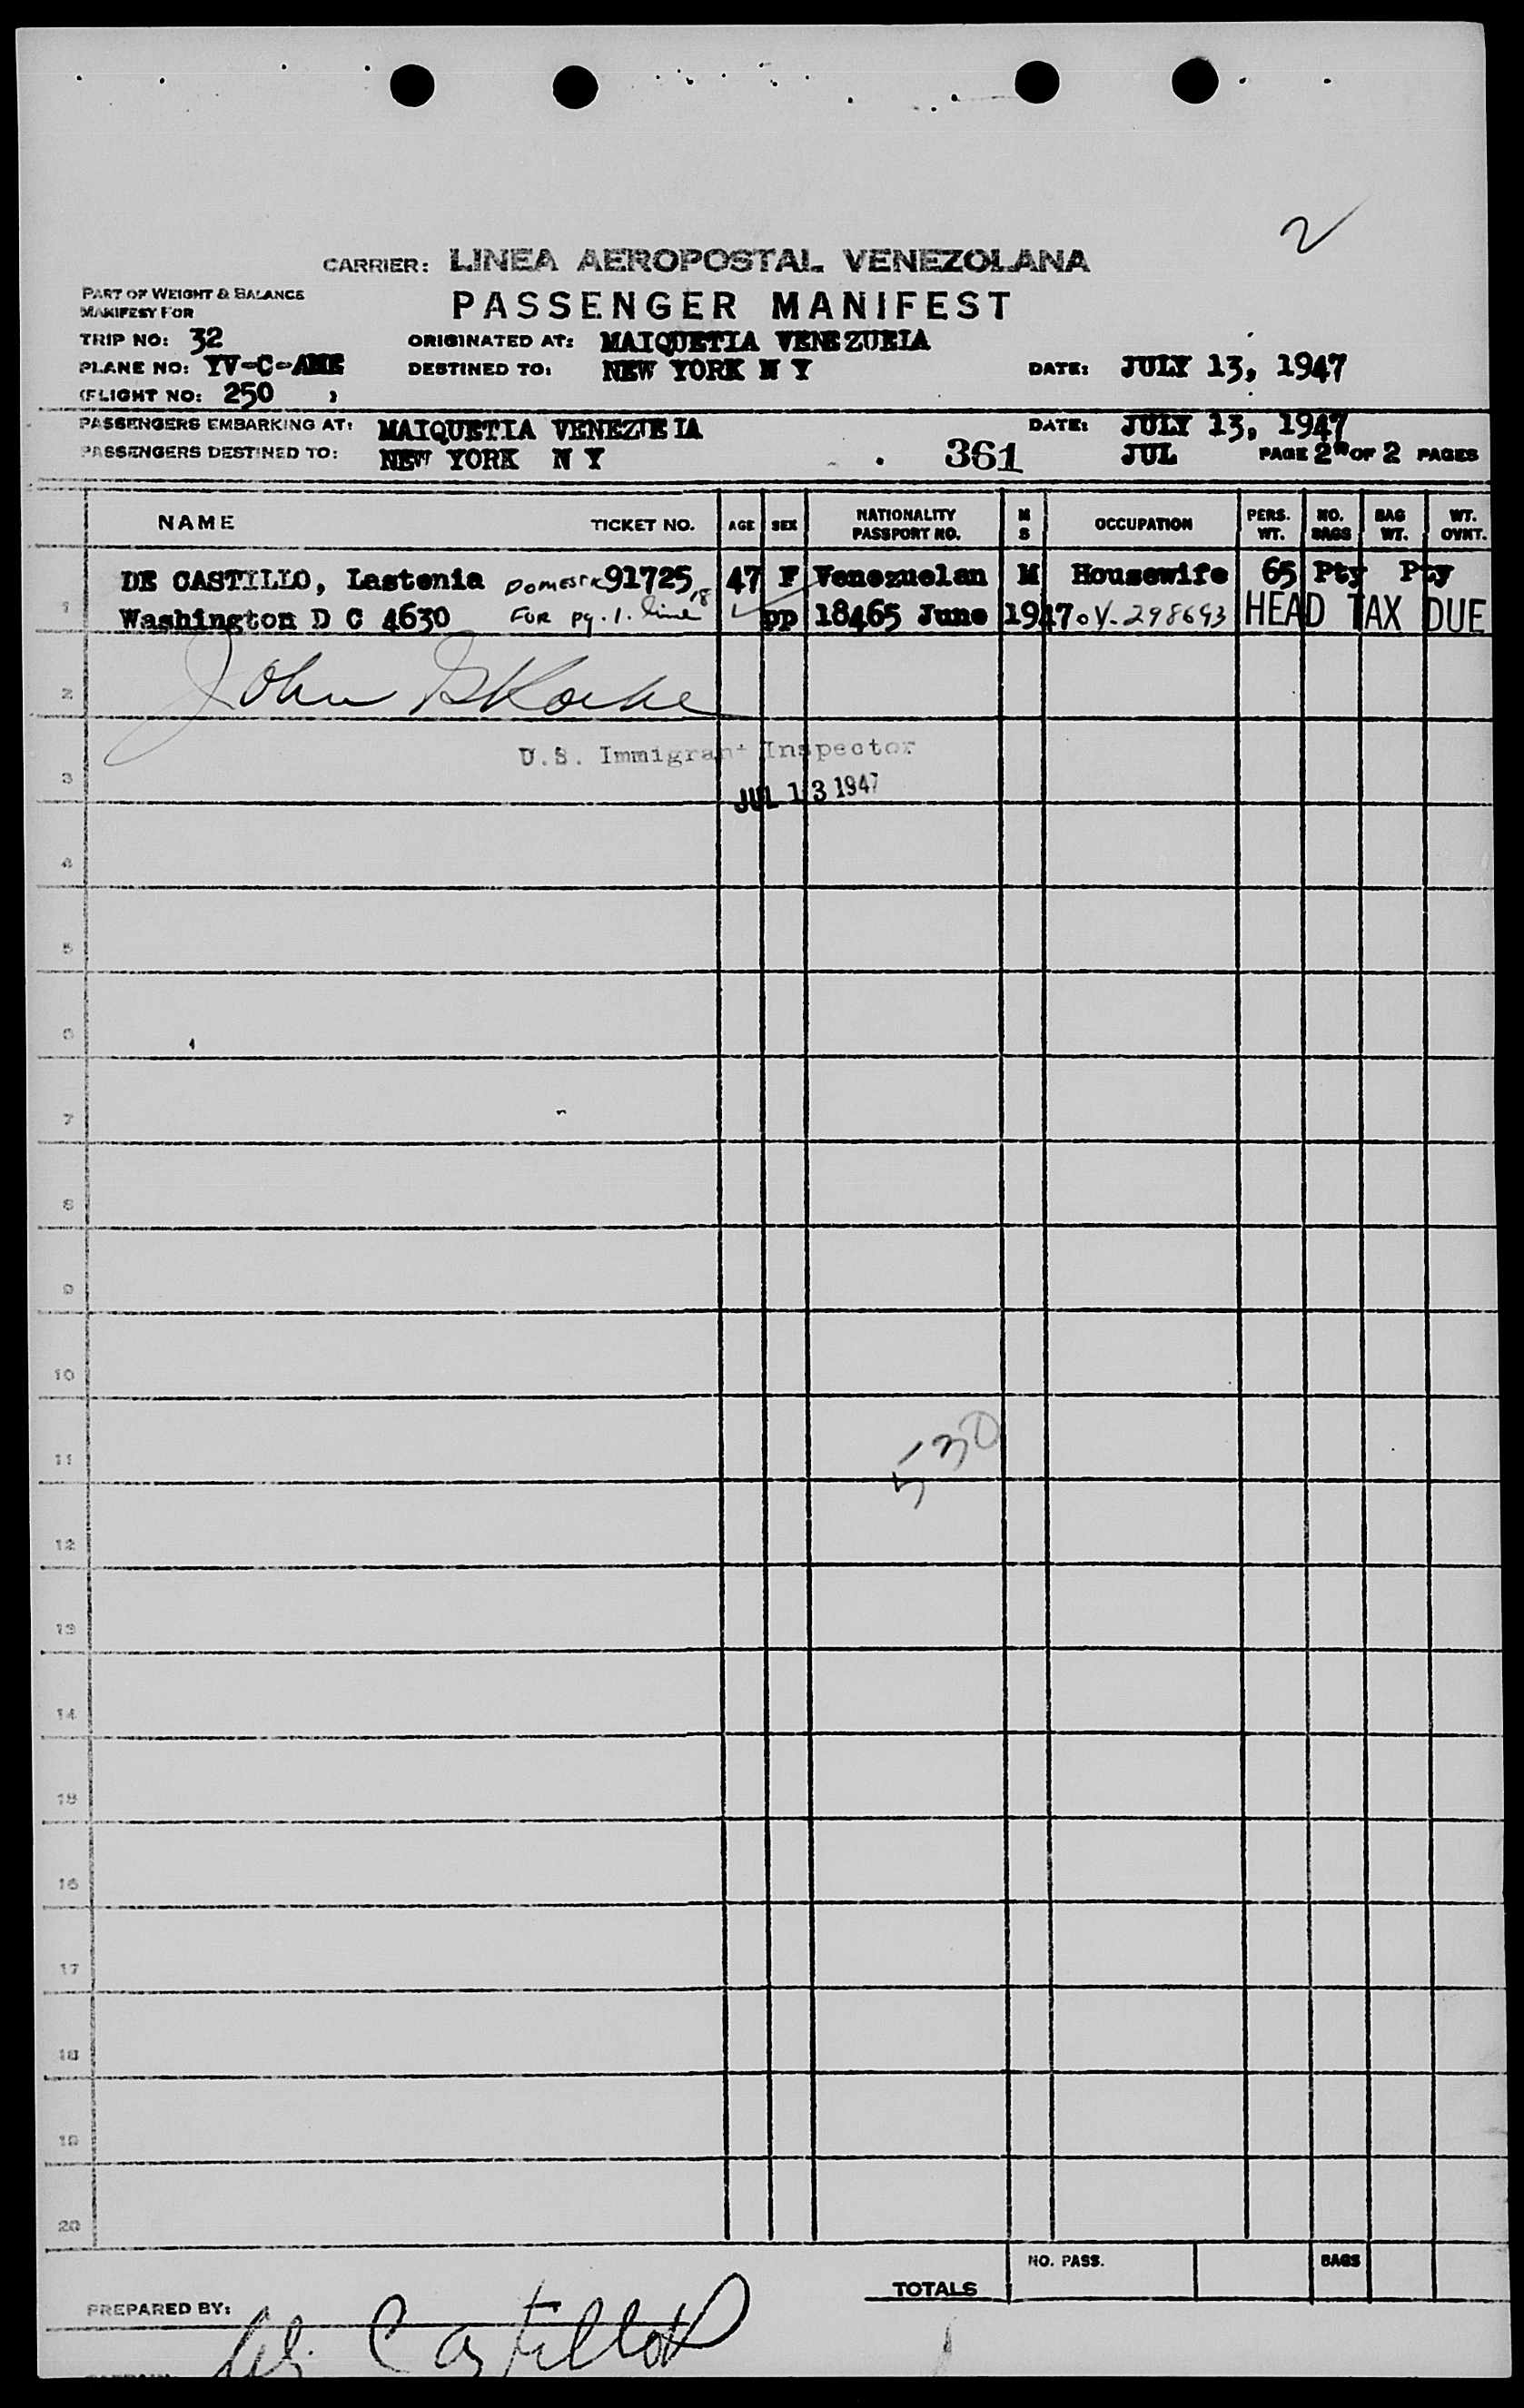 2
CARRIER: LINEA AEROPOSTAL VENEZOLANA
PART OF WEIGHT & BALANCE
MANIFEST FOR
PASSENGER MANIFEST
TRIP NO: 32
ORIGINATED AT: MAIQUETIA VENEZUEIA
PLANE NO: YV-C-AME
DESTINED TO: NEW YORK N Y
DATE: JULY 13, 1947
(FLIGHT NO: 250 )
PASSENGERS EMBARKING AT: MAIQUETIA VENEZUEIA
DATE: JULY 13, 1947
PASSENGERS DESTINED TO: NEW YORK N Y
361
JUL
PAGE 2 OF 2 PAGES
NAME TICKET NO. AGE SEX NATIONALITY PASSPORT NO. M S OCCUPATION PERS. WT. NO. BAGS BAG WT. WT. OVNT.
1 DE CASTILLO, Lastenia Domestic 91725 47 F Venezuelan M Housewife 65 Pty Pty
Washington D C 4630 FOR pg. 1. line 18 pp 18465 June 1947. V-298693 HEAD TAX DUE
2 John
U.S. Immigrant Inspector
3 JUL 13 1947
4
5
6
7
8
9
10
11 530
12
13
14
15
16
17
18
19
20
NO. PASS. BAGS
TOTALS
PREPARED BY:
Castillo